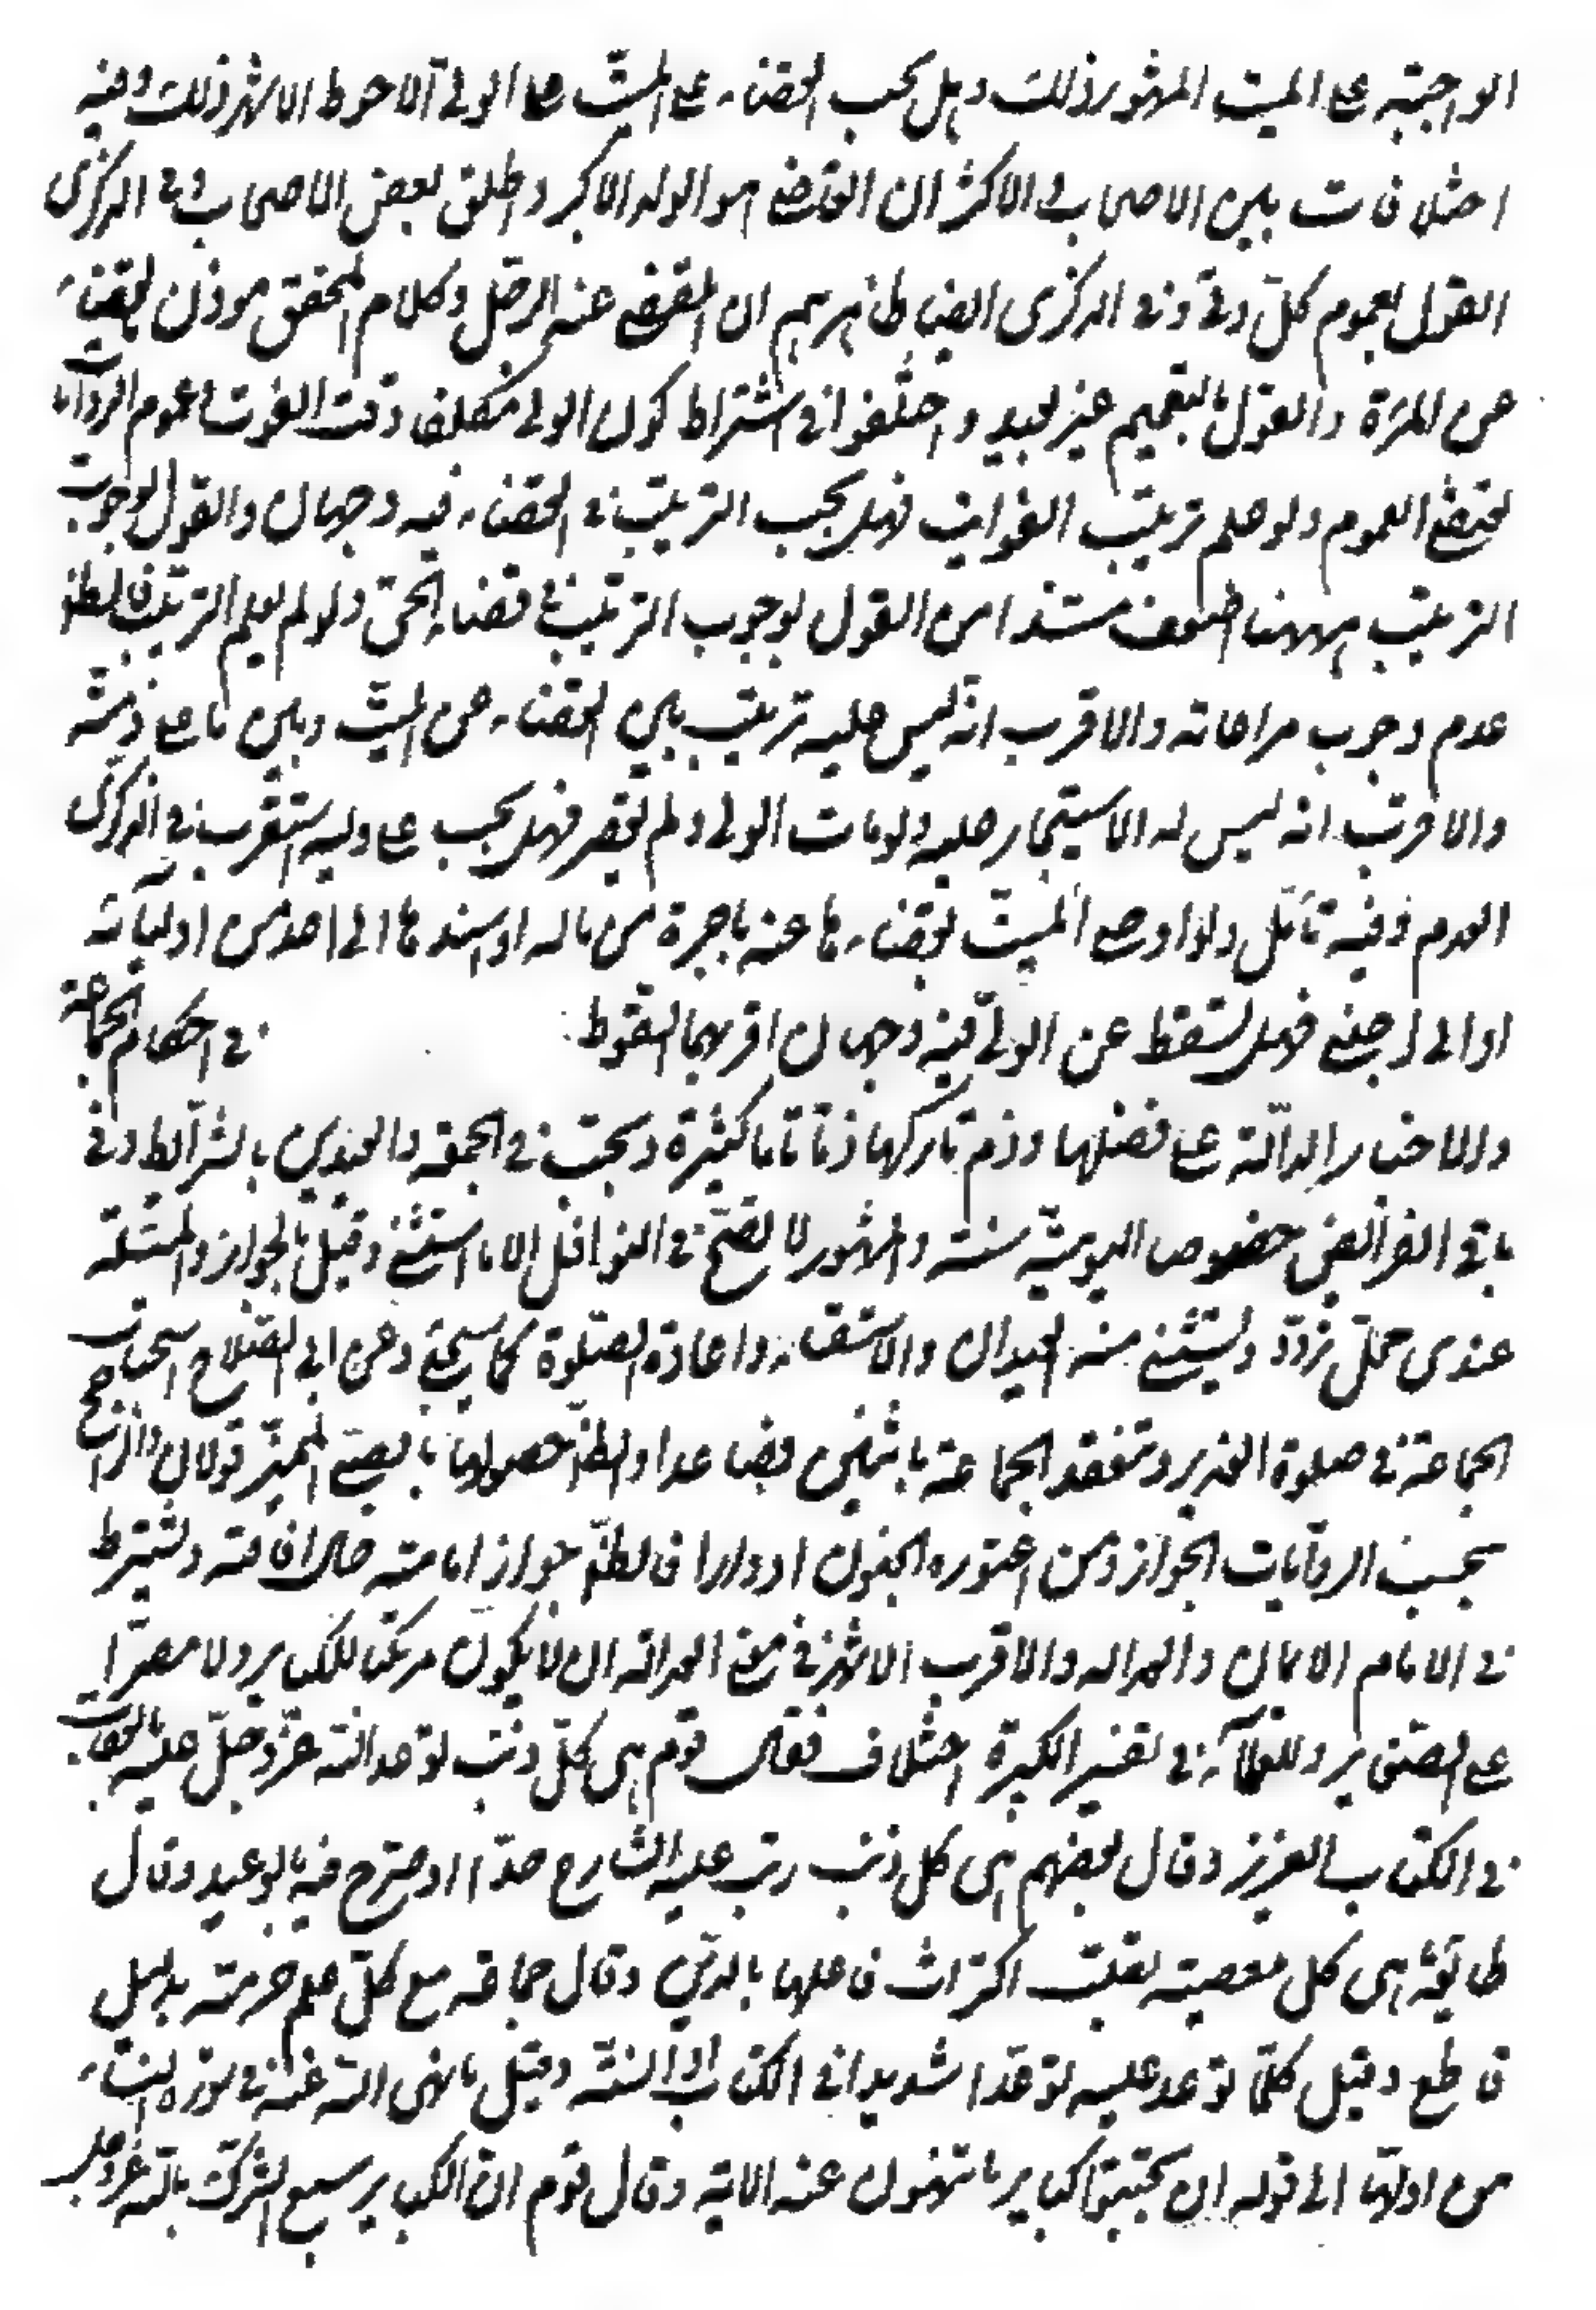 الواجبة على الميت المشهور ذلك وهل يجب القضاء على الميت على الولي الاحوط الاشهر ذلك وفيه
اختلافات بين الاصحاب والاكثر ان القاضي هو الولد الاكبر واطلق بعض الاصحاب وفي الذكرى
القول بعموم كل ولي وفي الذكرى ايضا ظاهرهم ان المقضي عنه الرجل وكلام المحقق موذن بالقضاء
عن المرأة والقول بالتعميم غير بعيد واختلفوا في اشتراط كون الولي مكلفا وقت الفوت وعموم الروايات
يقتضي العموم ولو علم ترتيب الفوايت فهل يجب الترتيب في القضاء فيه وجهان والقول بوجوب
الترتيب ههنا اضعف مستندا من القول بوجوب الترتيب في قضاء الحي ولو لم يعلم الترتيب فالظاهر
عدم وجوب مراعاته والاقرب انه ليس عليه ترتيب بين القضاء عن الميت وبين ما على ذمته
والاقرب انه ليس له الاستيجار عليه ولو مات الولي ولم يقض فهل يجب على وليه استقرب في الذكرى
العدم وفيه تأمل ولو اوصى الميت بقضاءها عنه باجرة من ماله او اسندها الى احد من اوليائه
او الى اجنبي فهل يسقط عن الولي فيه وجهان اقربهما السقوط في احكام الجماعة
والاخبار الدالة على فضلها وذم تاركها ذما تاما كثيرة ويجب في الجمعة والعيدين بالشرائط وفي
باقي الفرائض خصوص اليومية سنة والمشهور لا تصح في النوافل الا ما استثني وقيل بالجواز والمسئلة
عندي محل تردد ويستثنى منه العيدان والاستسقاء واعادة الصلوة كما سيجئ وعن ابي الصلاح استحباب
الجماعة في صلوة الغدير وتنعقد الجماعة باثنين فصاعدا والظ حصولها بالصبي المميز قولان والراجح
بحسب الروايات الجواز ومن اعتوره الجنون ادوارا فالظ جواز امامته حال افاقته ويشترط
في الامام الايمان والعدالة والاقرب الاشهر في معنى العدالة ان لا يكون مرتكبا للكباير ولا مصرا
على الصغاير وللعلماء في تفسير الكبيرة اختلاف فقال قوم هي كل ذنب توعد الله عز وجل عليه بالعقاب
في الكتاب العزيز وقال بعضهم هي كل ذنب رتب عليه الشارع حدا او صرح فيه بالوعيد وقال
طائفة هي كل معصية بقلت اكتراث فاعلها بالدين وقال جماعة هي كل علم حرمته بدليل
قاطع وقيل كلما توعد عليه توعدا شديدا في الكتاب او السنة وقيل ما نهى الله عنه في سورة النساء
من اولها الى قوله ان تجتنبوا كباير ما تنهون عنه الاية وقال قوم ان الكباير سبع الشرك بالله عز وجل